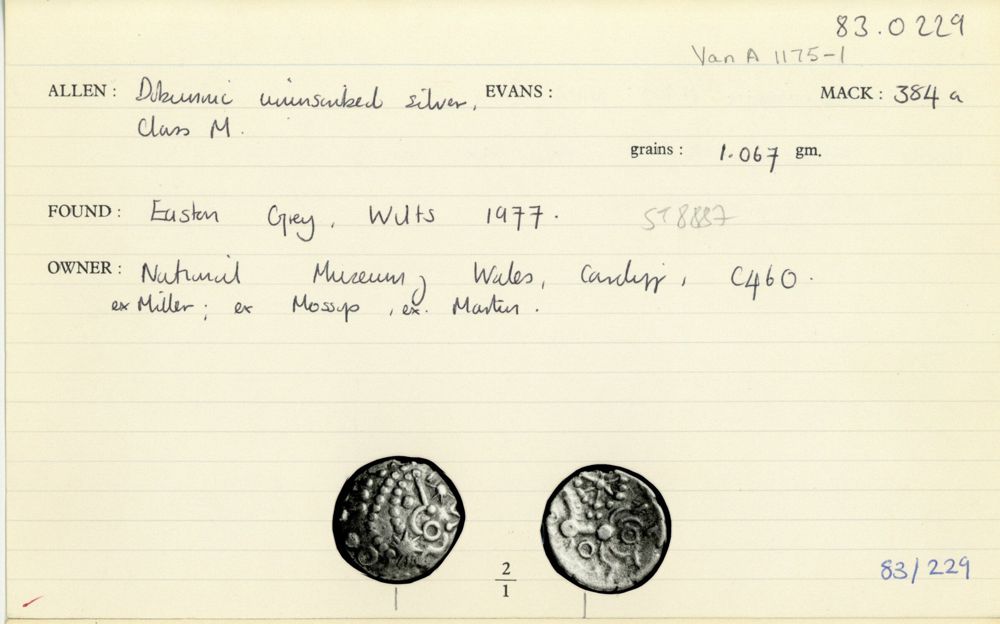 83.0229
Van A 1175-1
ALLEN: Dobunnic uninscribed silver, EVANS: MACK: 384 a
Class M.
grains: 1.067 gm.
FOUND: Easton Grey, Wilts 1977. ST8887
OWNER: National Museum of Wales, Cardiff, C460.
ex Miller; ex Mossop, ex. Martin.
2
1
83/229